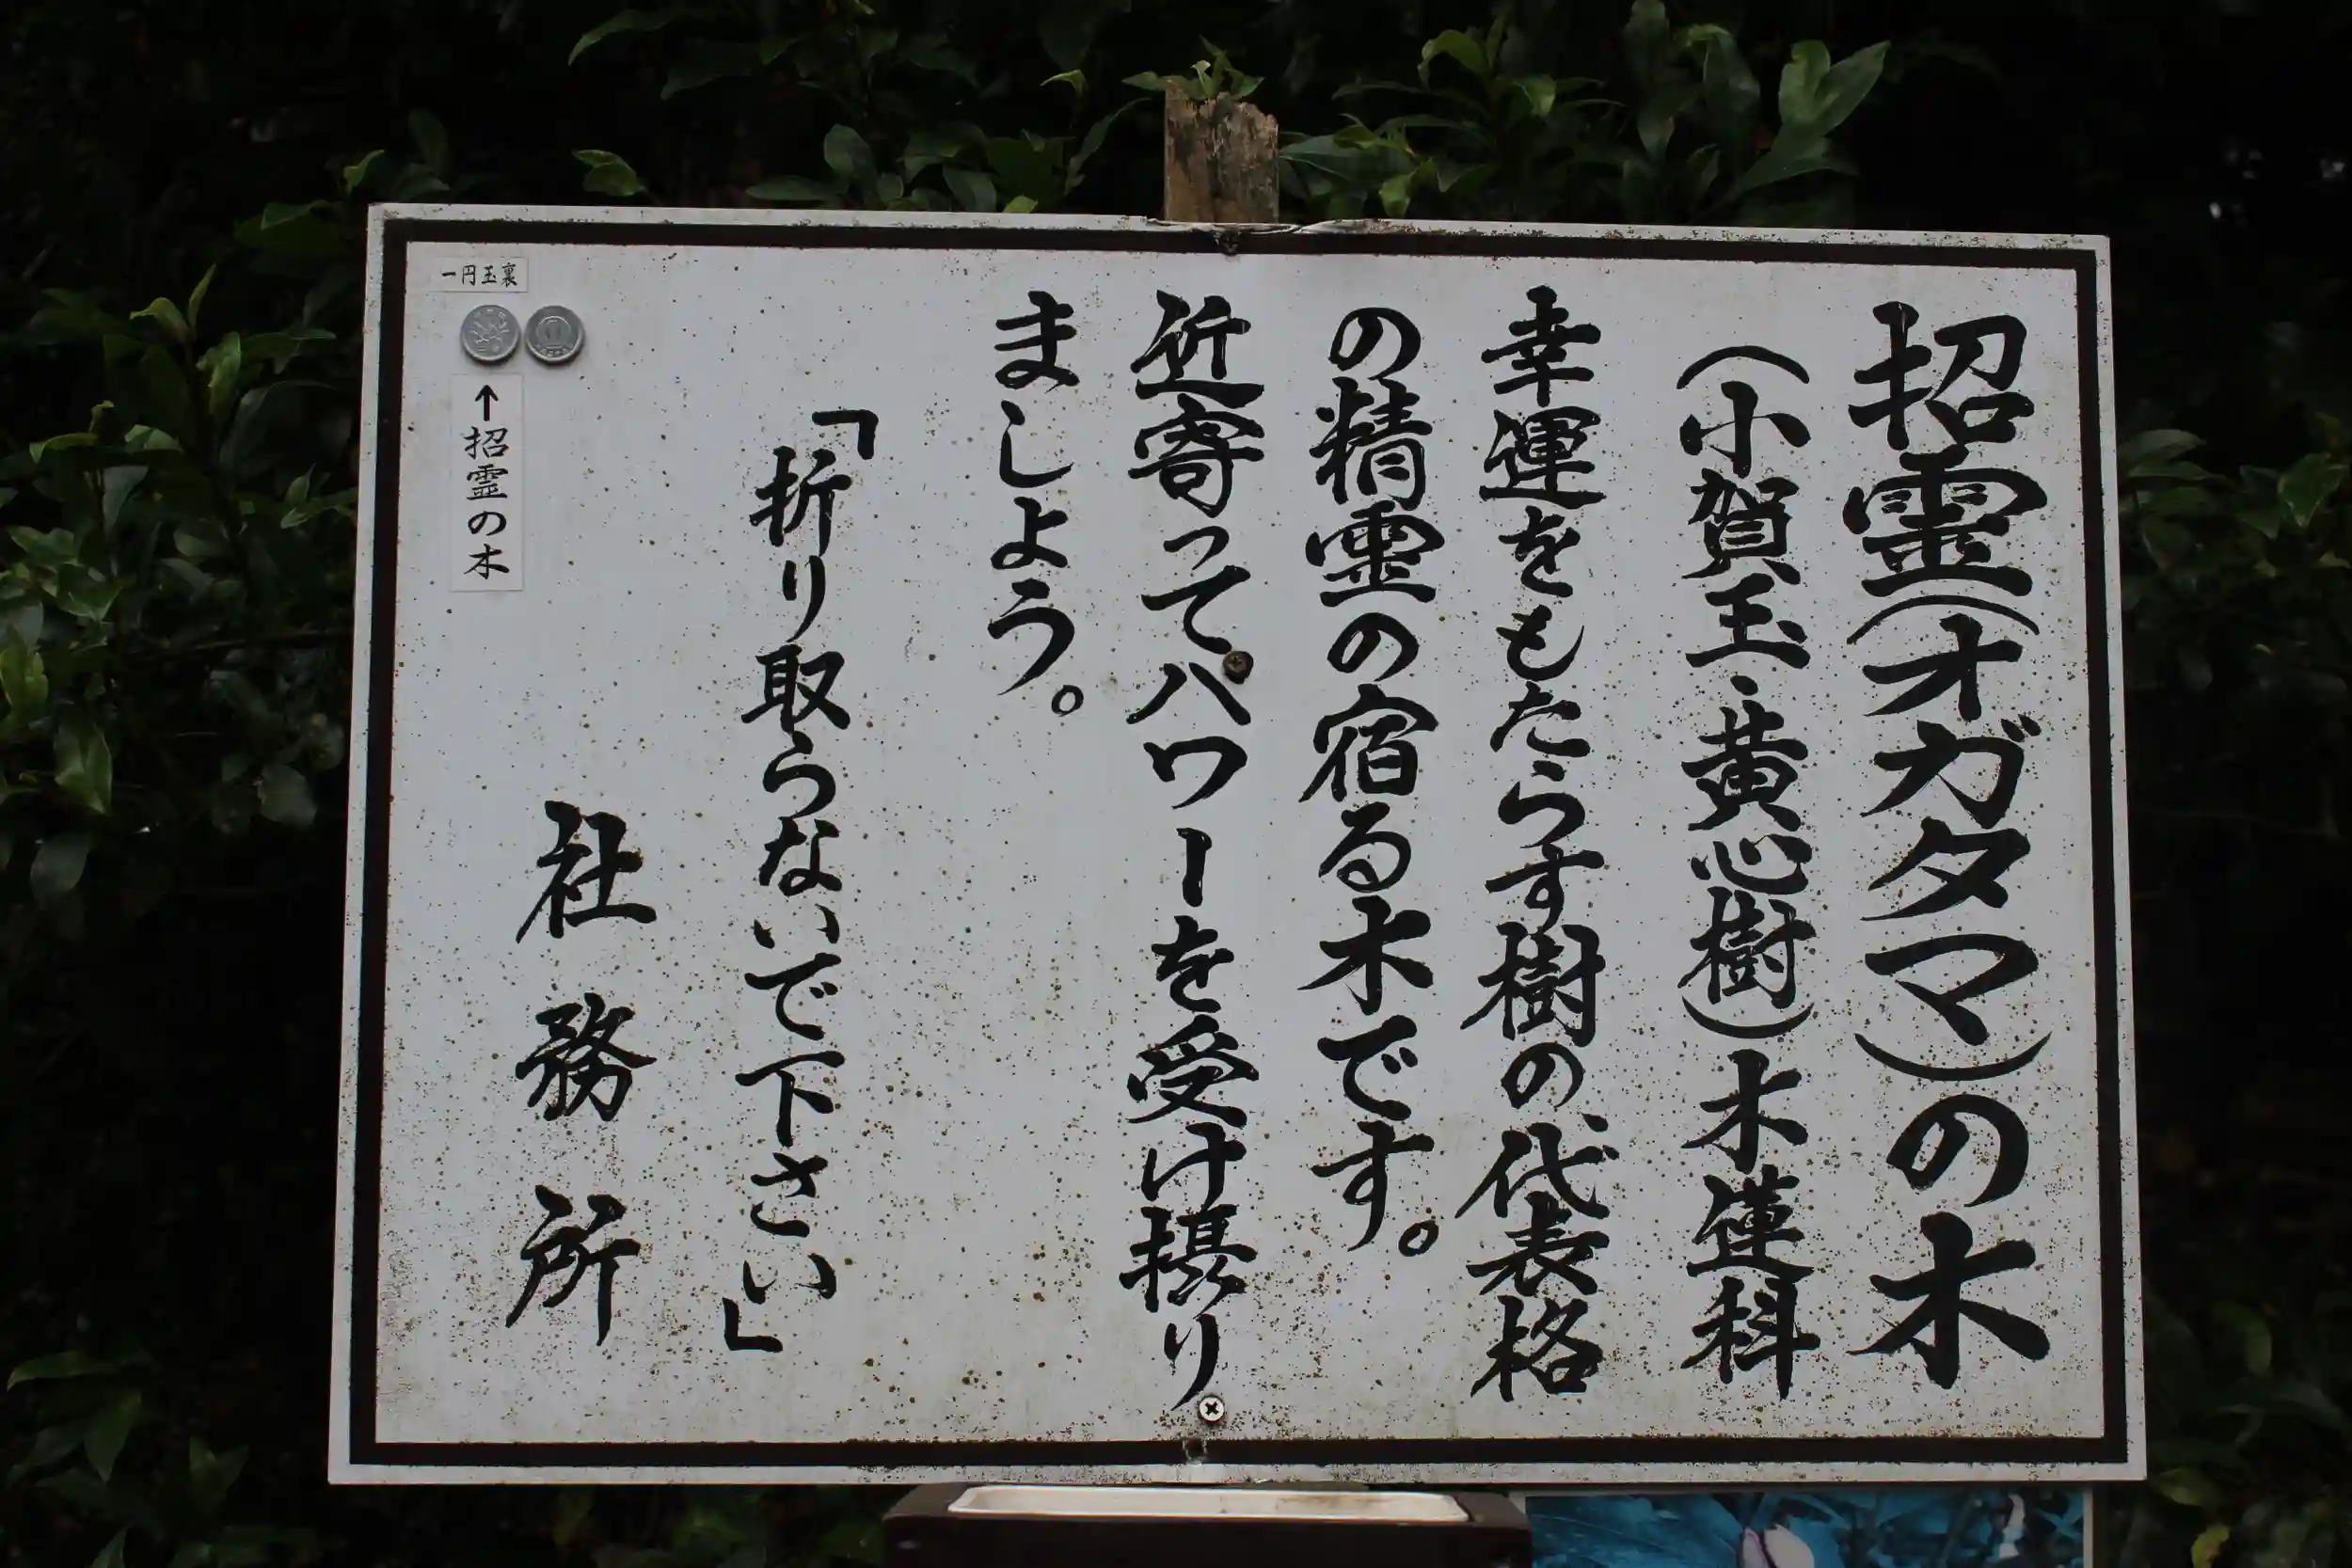 招霊(オガタマ)の木
(小賀玉・黄心樹)木蓮科
幸運をもたらす樹の、代表格
の精霊の宿る木です。
近寄ってパワーを受け摂り
ましよう。
「折り取らないで下さい」
社務所
一円玉裏
↑招霊の木